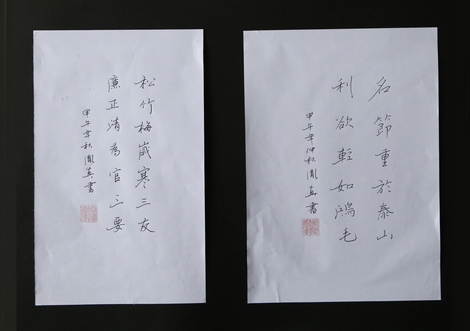 名節重於泰山
利欲輕如鴻毛
甲午年仲秋書
松竹梅歲寒三友
廉正清為官三要
甲午年秋書